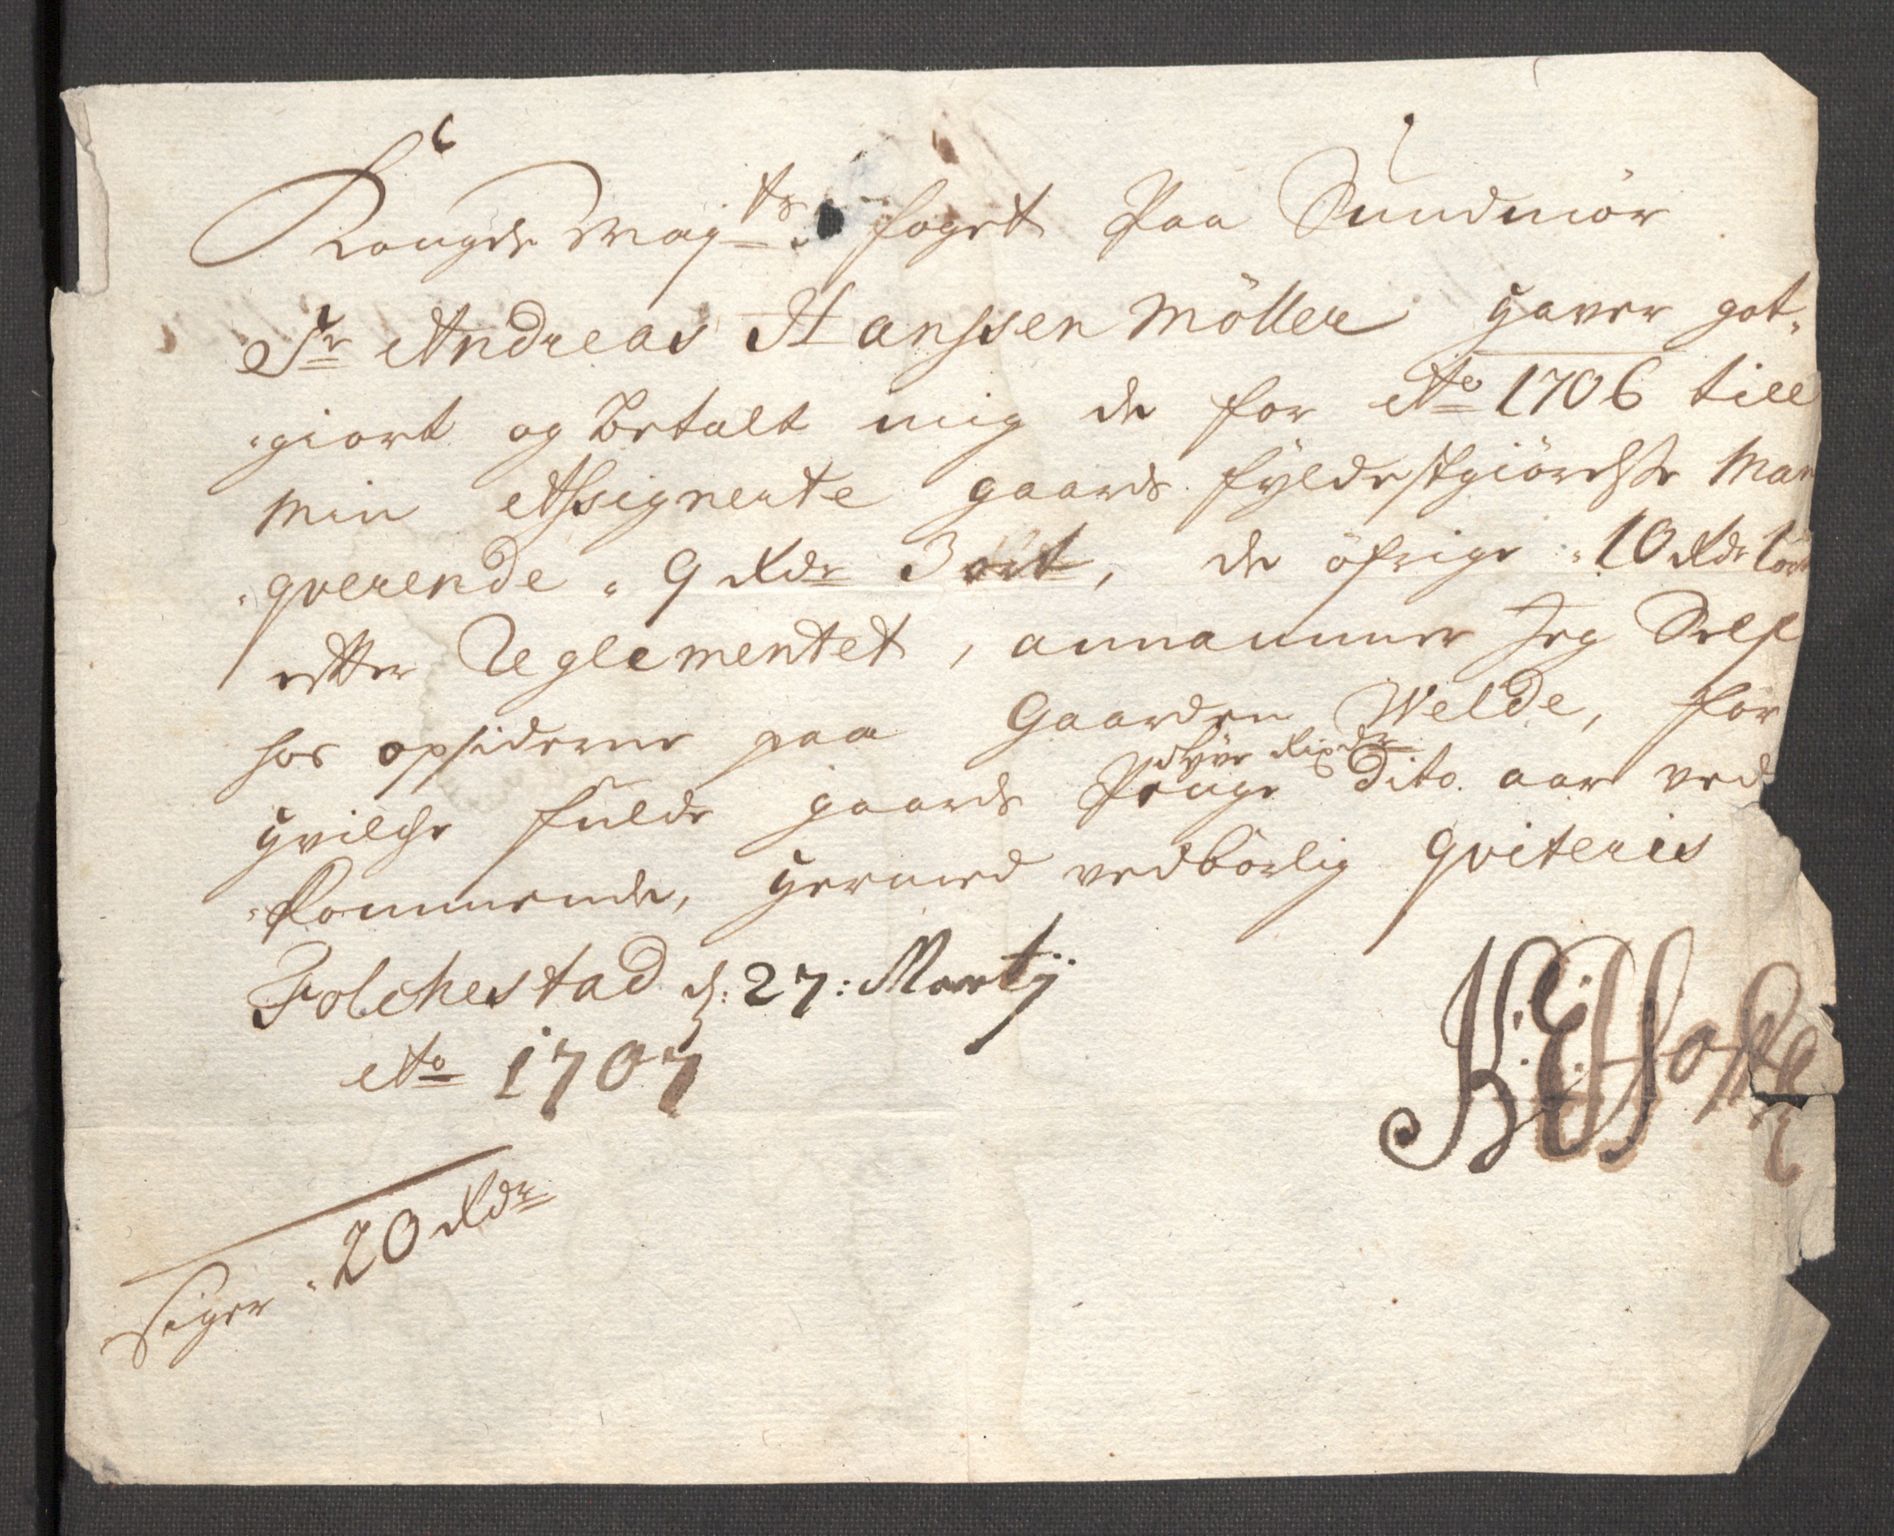 Kongde Mayts foget Paa Sundmör
Sr Andreas Hanssen Möller haver got¬
giort og betalt mig de for Ao 1706 till
min Assignerte gaards fyldestgiörelse Man
qverende 9 Rdr 3 ort, de öfrige 10 Rdr 1 ort
etter Reglementet, annammer Jeg Self
hos opsiderne paa Gaarden Welde, for
tyve Rixdr
hvilche fulde gaards Penge dito aar ved
kommende, hermed vedbörlig qviteris
Folchestad d: 27: Martij
Ao 1707
siger 20 Rdr